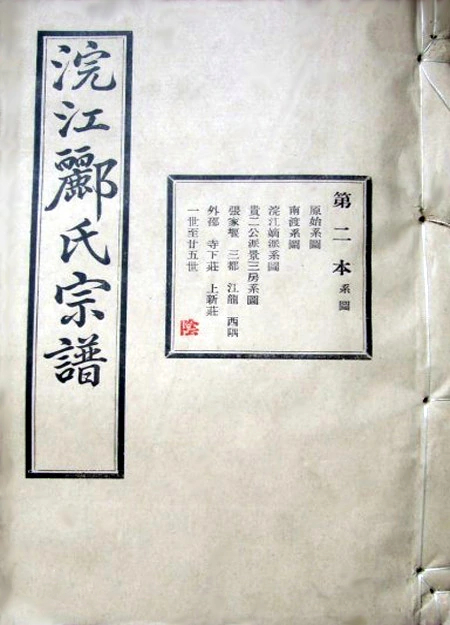 浣江酈氏宗譜
第二本 系圖
原始系圖
南渡系圖
浣江嫡派系圖
貴二公派景三房系圖
張家堰 三都 江龍 西隅
外邵 寺下莊 上新莊
一世至廿五世
陰